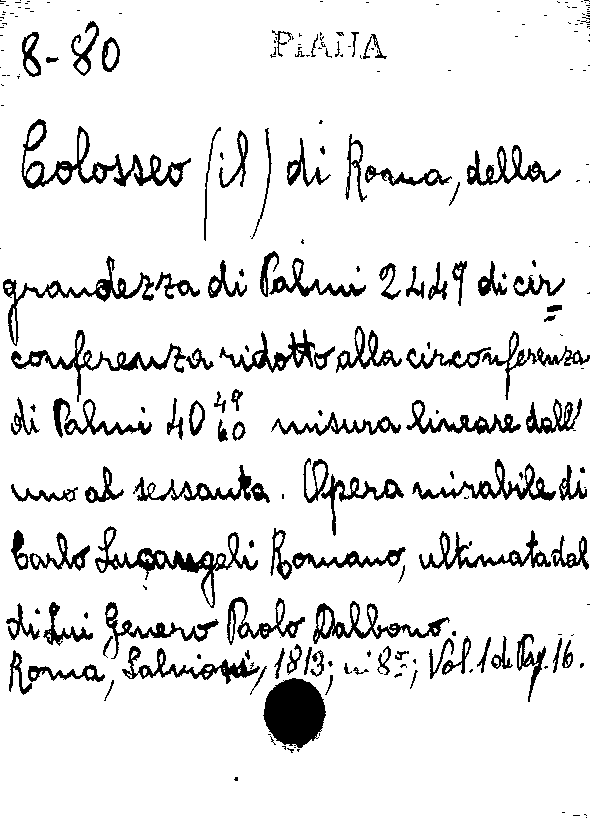 8-80 PIANA
Colosseo (il) di Roma, della
grandezza di Palmi 2449 di cir=
conferenza ridotto alla circonferenza
di Palmi 40 49/60 misura lineare dall'
uno al sessanta. Opera mirabile di
Carlo Lucangeli Romano, ultimata dal
di Lui Genero Paolo Dalbono.
Roma, Salvioni, 1813; in 8º; Vol. 1 di Pag. 16.